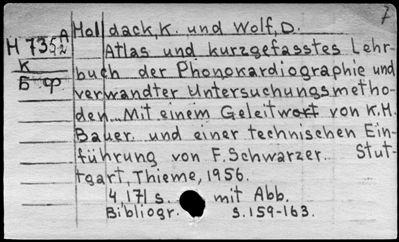 7
Holldack, K. und Wolf, D.
H 7352 A
Atlas und kurzgefasstes Lehr-
K
buch der Phonokardiographie und
Б Ф
verwandter Untersuchungsmetho-
den. Mit einem Geleitwort von K.H.
Bauer und einer technischen Ein-
führung von F. Schwarzer. Stut-
tgart, Thieme, 1956.
4, 171 s. mit Abb.
Bibliogr. S. 159-163.